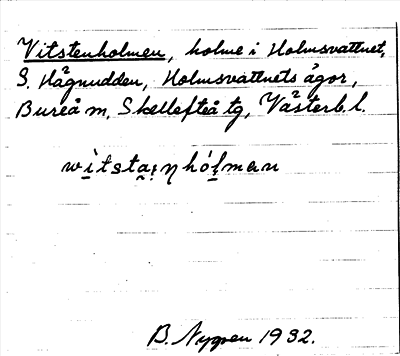 Vitstenholmen, holme i Holmsvattnet,
S. Hägnudden, Holmsvattnets ägor,
Bureå m, Skellefteå tg, Västerb. l.
witstaiŋhólman
B. Nygren 1932.